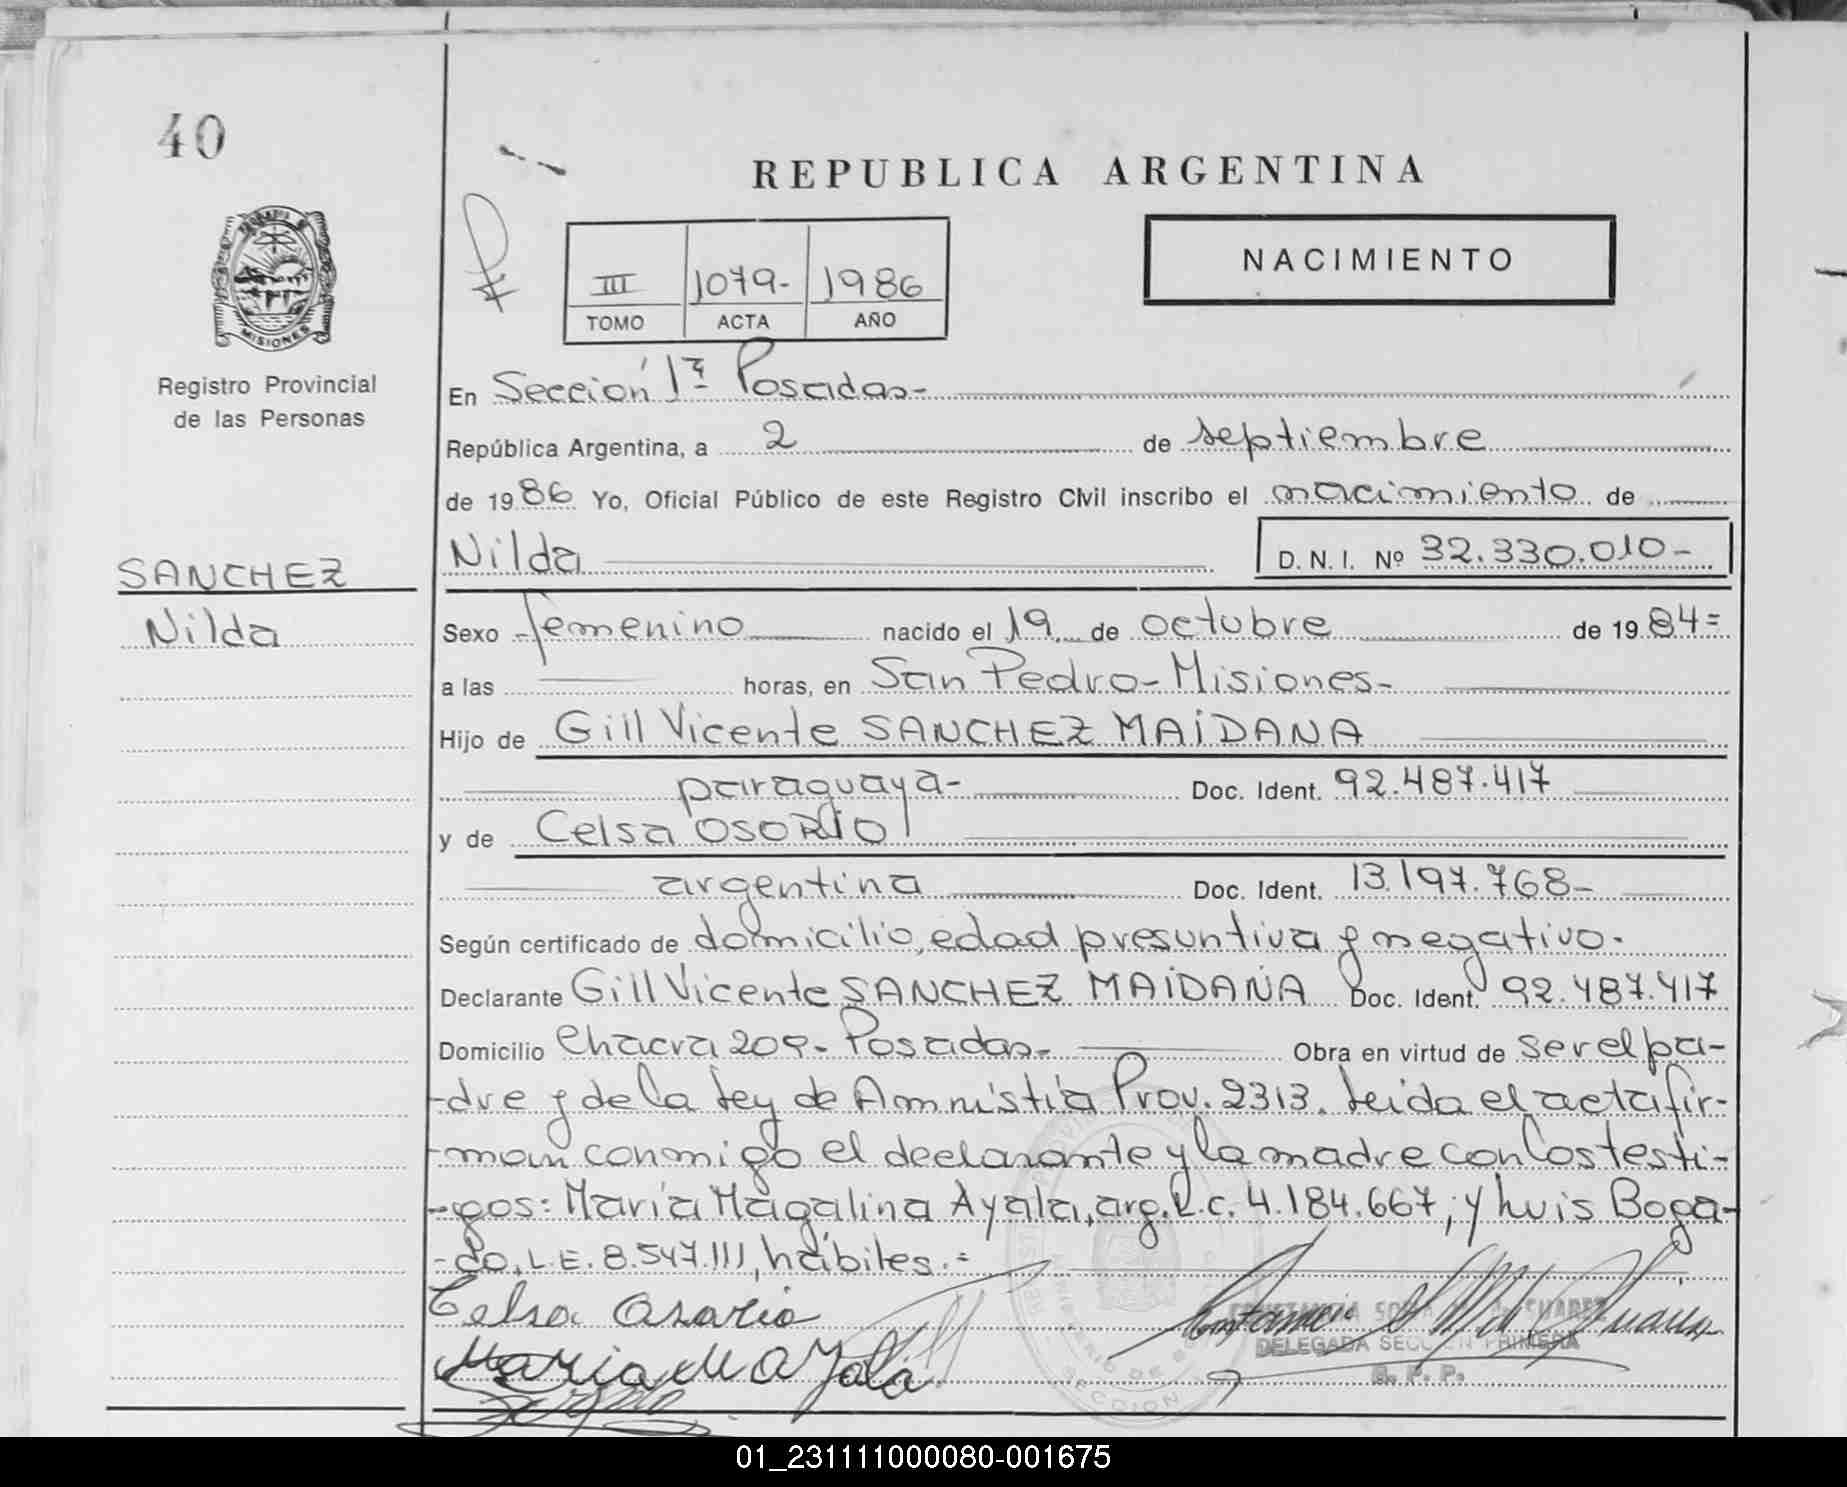 40
REPUBLICA ARGENTINA
NACIMIENTO
III 1079- 1986
TOMO ACTA AÑO
MISIONES
Registro Provincial
de las Personas
SANCHEZ
Nilda
En Sección 1ª Posadas-
República Argentina, a 2 de septiembre
de 1986 Yo, Oficial Público de este Registro Civil inscribo el nacimiento de
Nilda D. N. I. Nº 32.330.010-
Sexo femenino nacido el 19 de octubre de 1984=
a las horas, en San Pedro-Misiones-
Hijo de Gill Vicente SANCHEZ MAIDANA
paraguaya- Doc. Ident. 92.487.417
y de Celsa OSORIO
argentina Doc. Ident. 13.197.768-
Según certificado de domicilio, edad presuntiva y negativo.
Declarante Gill Vicente SANCHEZ MAIDANA Doc. Ident. 92.487.417
Domicilio Chacra 209- Posadas- Obra en virtud de ser el pa-
-dre y de la Ley de Amnistia Prov. 2313. Leida el acta fir-
-man conmigo el declarante y la madre con los testi-
-gos: María Magalina Ayala, arg. L.c. 4.184.667, y Luis Boga-
-do, L.E. 8.547.111, hábiles.=
Celsa Osorio
Maria M Ayala
DELEGADA SECCION PRIMERA
R. P. P.
SECCION
01_231111000080-001675